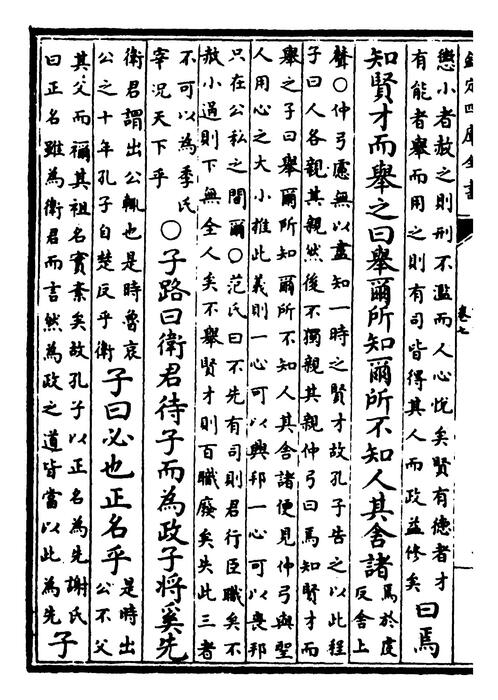 欽定四庫全書
卷七
懲小者赦之則刑不濫而人心悅矣賢有德者才
有能者舉而用之則有司皆得其人而政益修矣
曰焉
知賢才而舉之曰舉爾所知爾所不知人其舍諸
焉於虔
反舍上
聲○仲弓慮無以盡知一時之賢才故孔子告之以此程
子曰人各親其親然後不獨親其親仲弓曰焉知賢才而
舉之子曰舉爾所知爾所不知人其舍諸便見仲弓與聖
人用心之大小推此義則一心可以興邦一心可以喪邦
只在公私之間爾○范氏曰不先有司則君行臣職矣不
赦小過則下無全人矣不舉賢才則百職廢矣失此三者
不可以為季氏
宰況天下乎
○子路曰衛君待子而為政子將奚先
衛君謂出公輒也是時魯哀
公之十年孔子自楚反乎衛
子曰必也正名乎
是時出
公不父
其父而禰其祖名實紊矣故孔子以正名為先謝氏
曰正名雖為衛君而言然為政之道皆當以此為先
子